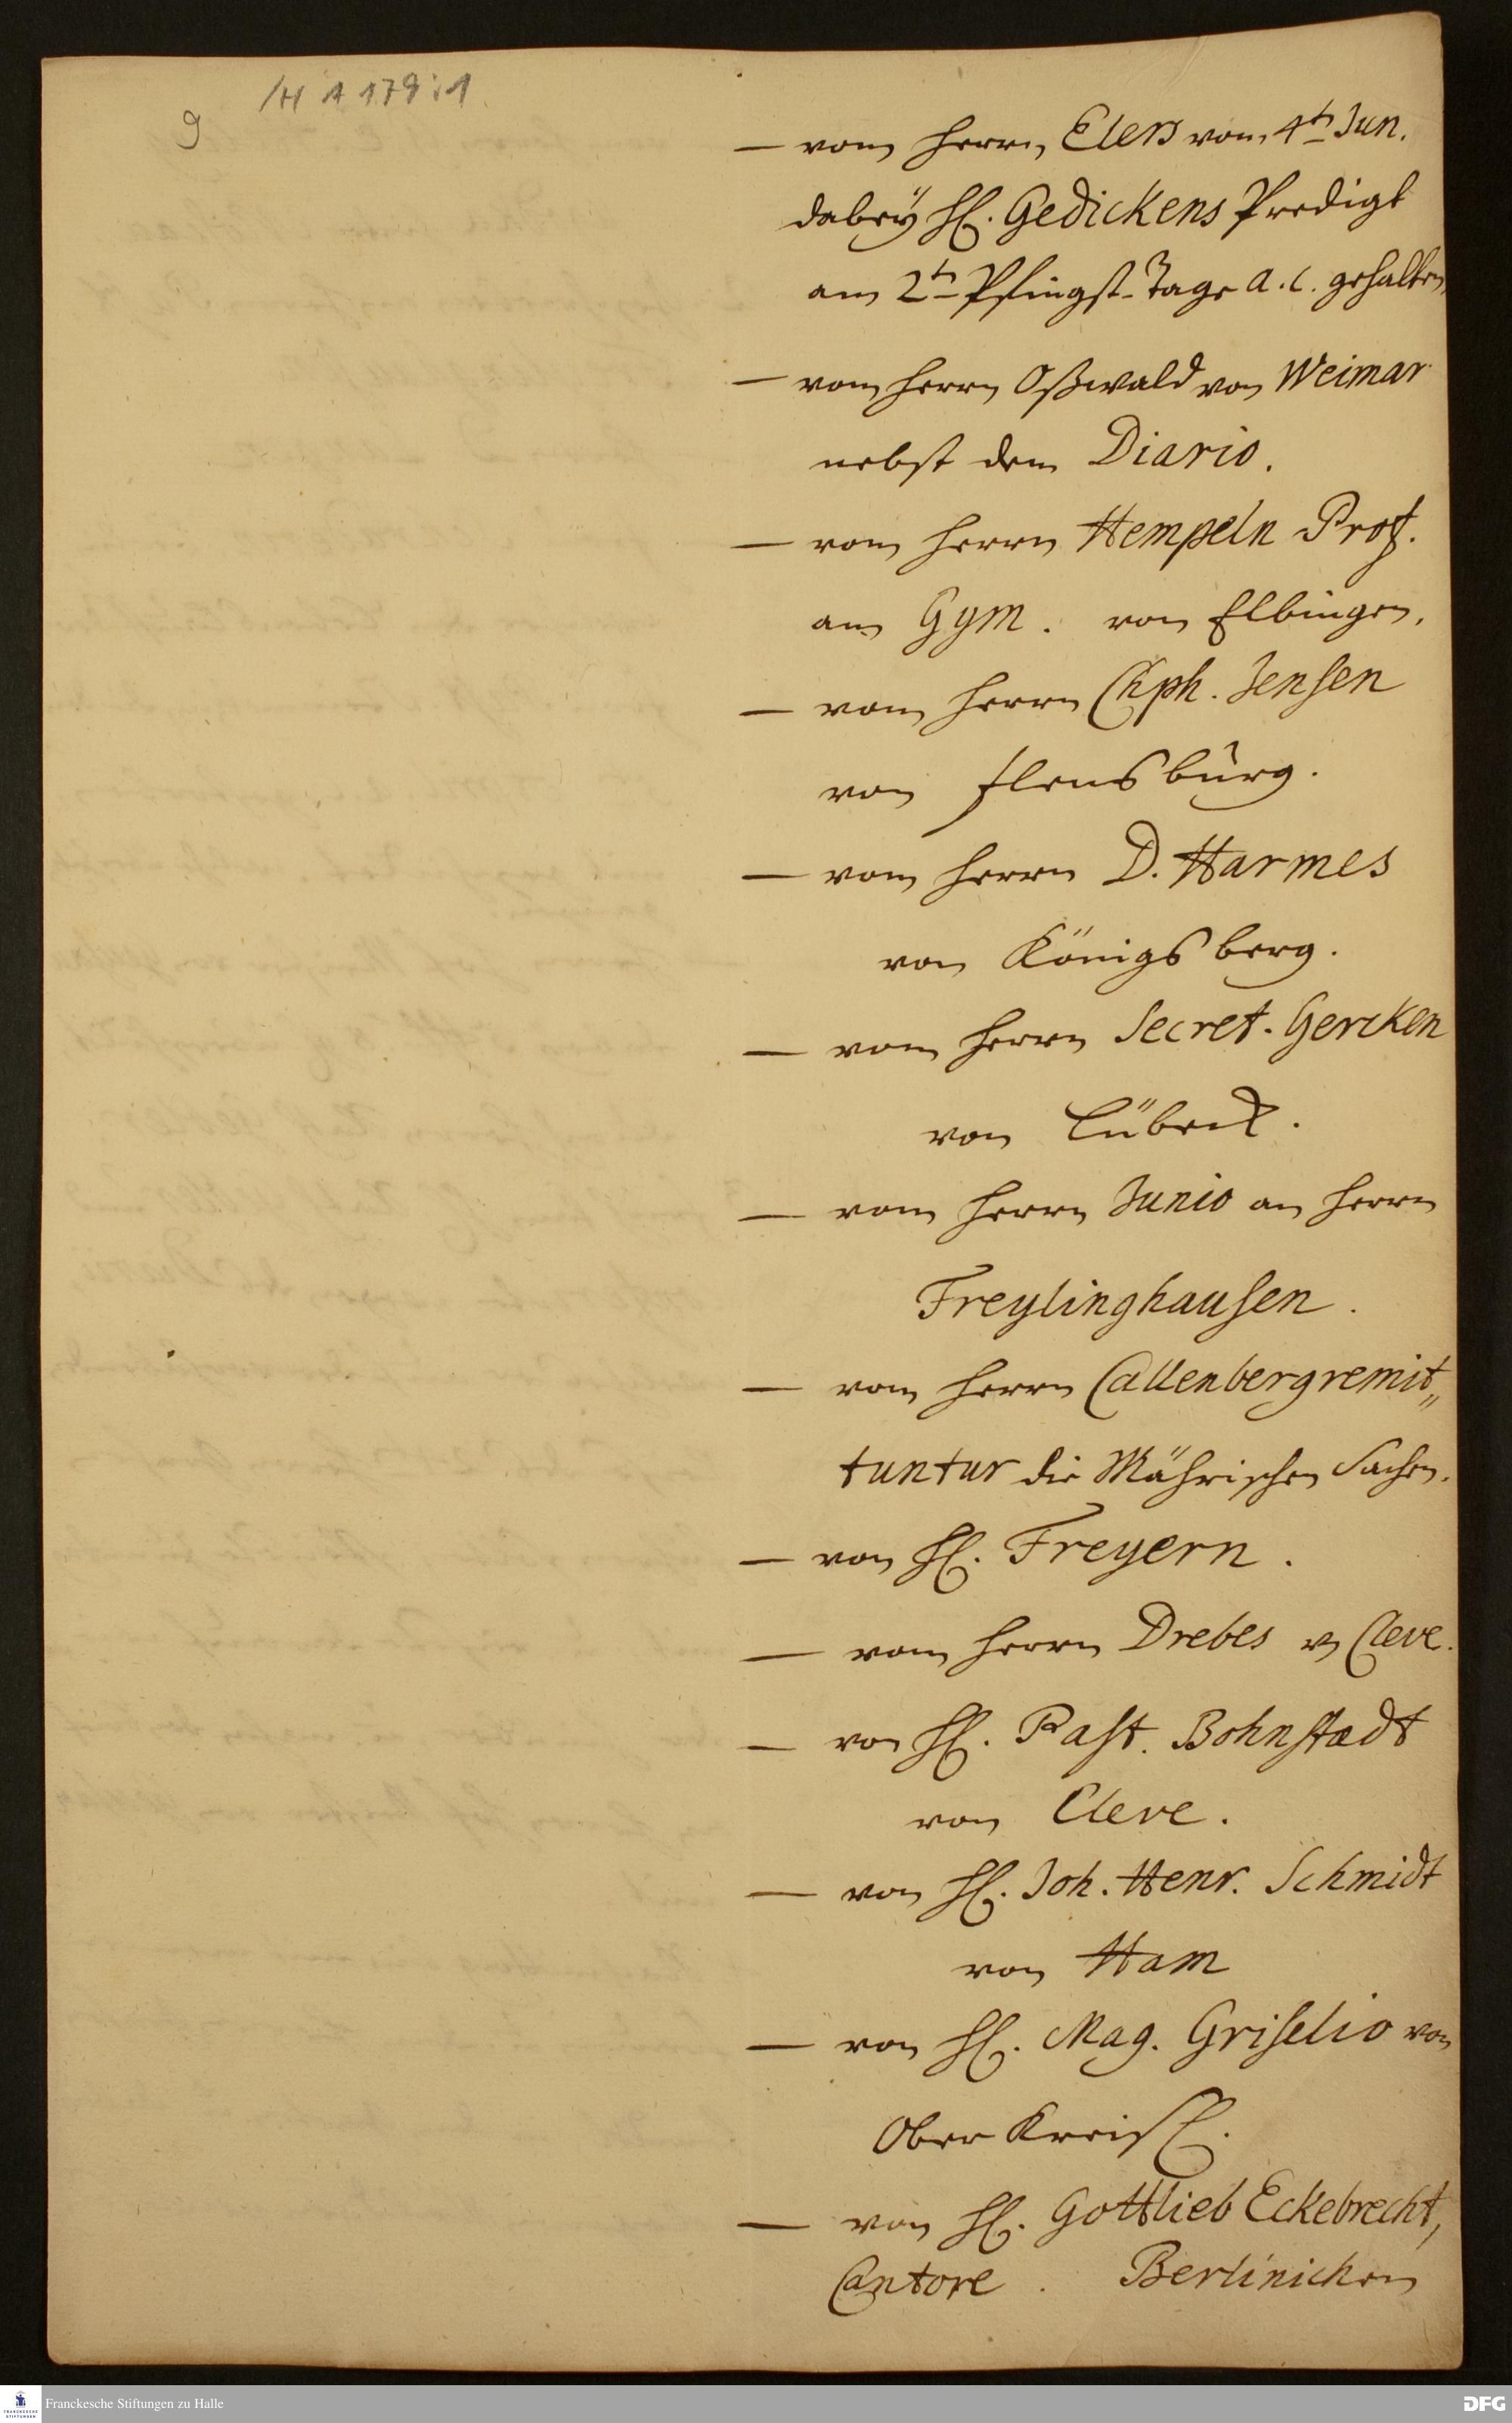 /H A 179:1
9
— vom Herrn Elers vom 4t Jun.
dabey H. Gedickens Predigt
am 2t Pfingst-Tage a. c. gehalten,
— vom Herrn Oßwald von Weimar
nebst dem Diario.
— vom Herrn Hempeln Prof.
am Gym. von Elbingen.
— vom Herrn Chph. Jensen
von Flensburg.
— vom Herrn D. Harmes
von Königsberg.
— vom Herrn Secret. Gercken
von Lübeck.
— vom Herrn Junio an Herrn
Freylinghausen.
— vom Herrn Callenberg remit„
tuntur die Mährischen Sachen.
— von H. Freyern.
— vom Herrn Drebes v. Cleve.
— von H. Past. Bohnstædt
von Cleve.
— von H. Joh. Henr. Schmidt
von Ham
— von H. Mag. Griselio von
Ober
— von H. Gottlieb Eckebrecht,
Cantore. Berlinichen
Franckesche Stiftungen zu Halle
DFG